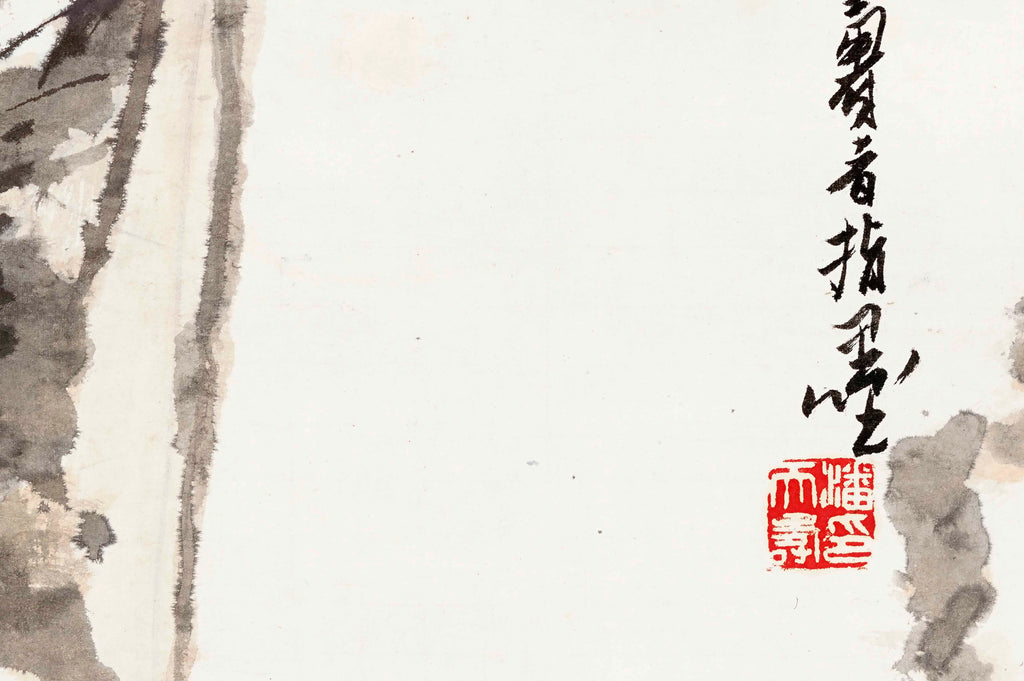 壽者指墨
潘印
天壽